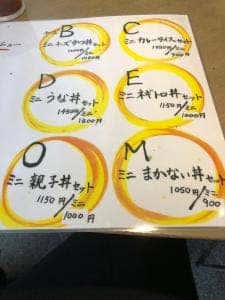 ニュー
B
ミニ チーズかつ丼セット
C
ミニ カレーライスセット
1050円/ミニ
900円
D
ミニ うな丼 セット
1450円/ミニ
1200円
E
ミニ ネギトロ丼 セット
1150円/ミニ
1000円
O
ミニ 親子丼セット
1150円/ミニ
1000円
M
ミニ まかない丼セット
1050円/ミニ
900